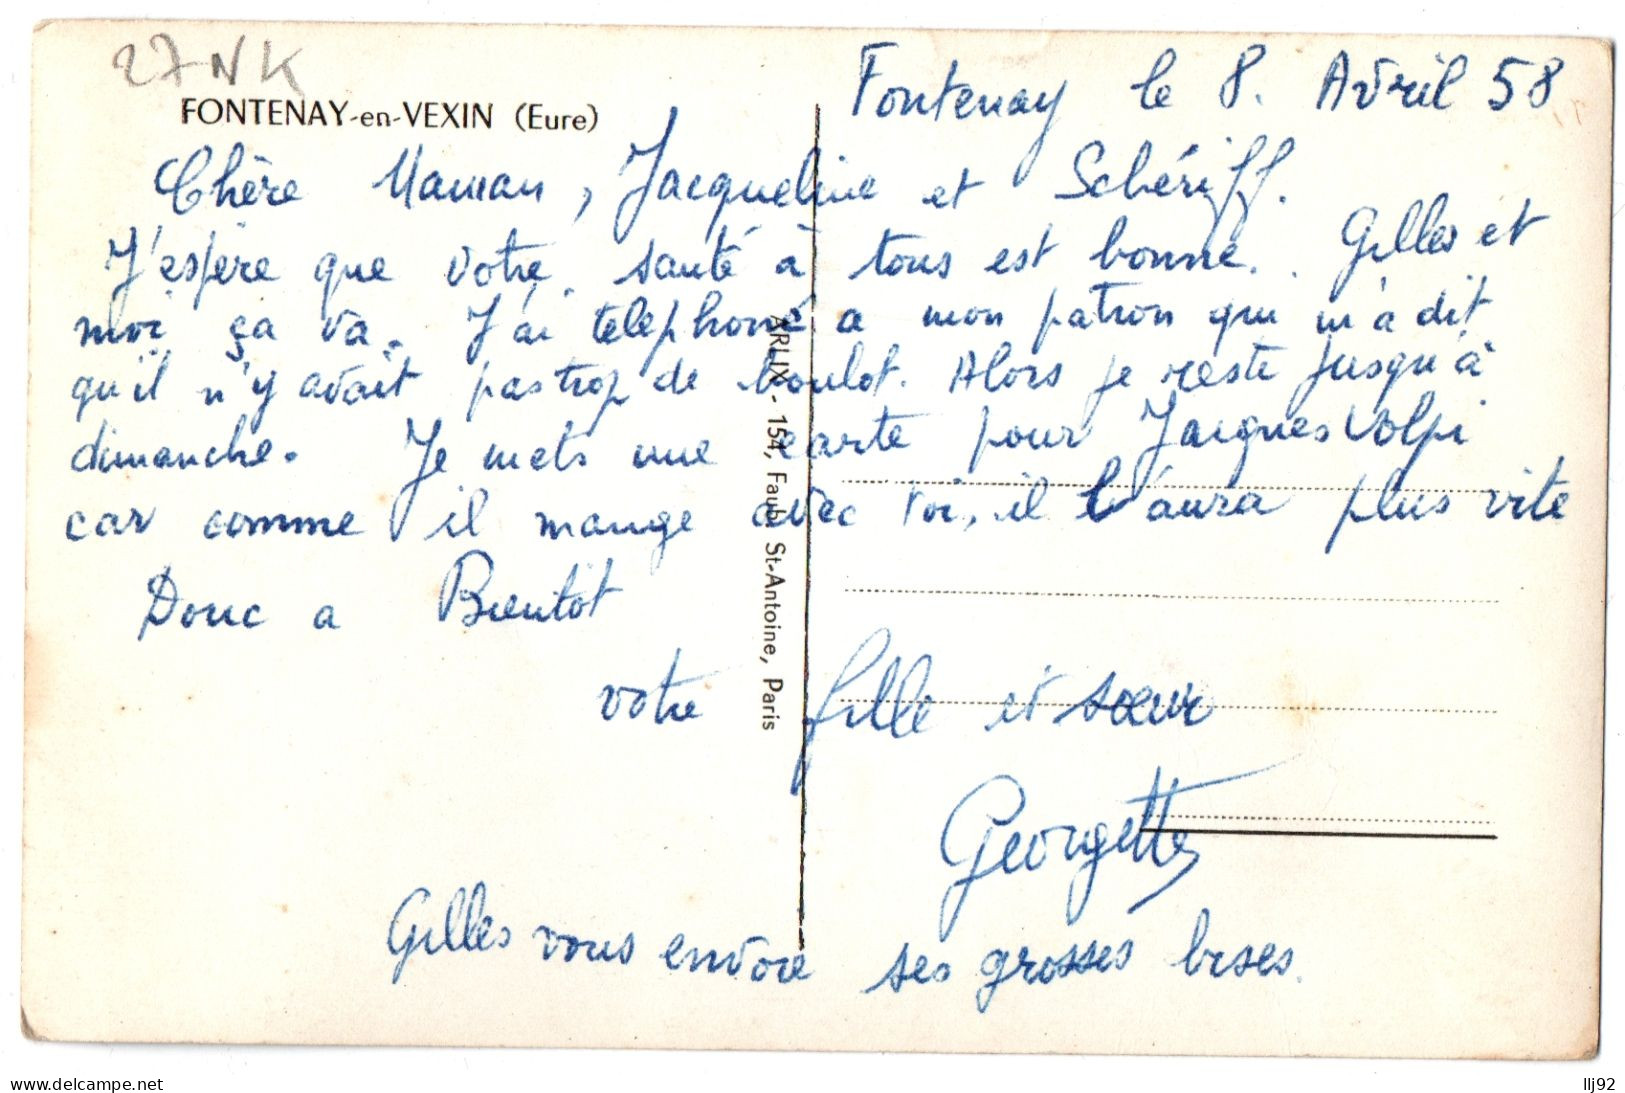 27 NK
FONTENAY-en-VEXIN (Eure)
Fontenay le 8. Avril 58
Chère Maman, Jacqueline et Schériff.
J'espère que votre santé à tous est bonne. Gilles et
moi ça va. J'ai téléphoné a mon patron qui m'a dit
qu'il n'y avait pas trop de boulot. Alors je reste jusqu'à
dimanche. Je mets une carte pour Jacques Volpi
car comme il mange avec toi, il l'aura plus vite
Donc a Bientôt
votre fille et sœur
Georgette
Gilles vous envoie ses grosses bises.
ARLIX - 154, Faub. St-Antoine, Paris
delcampe.net
llj92